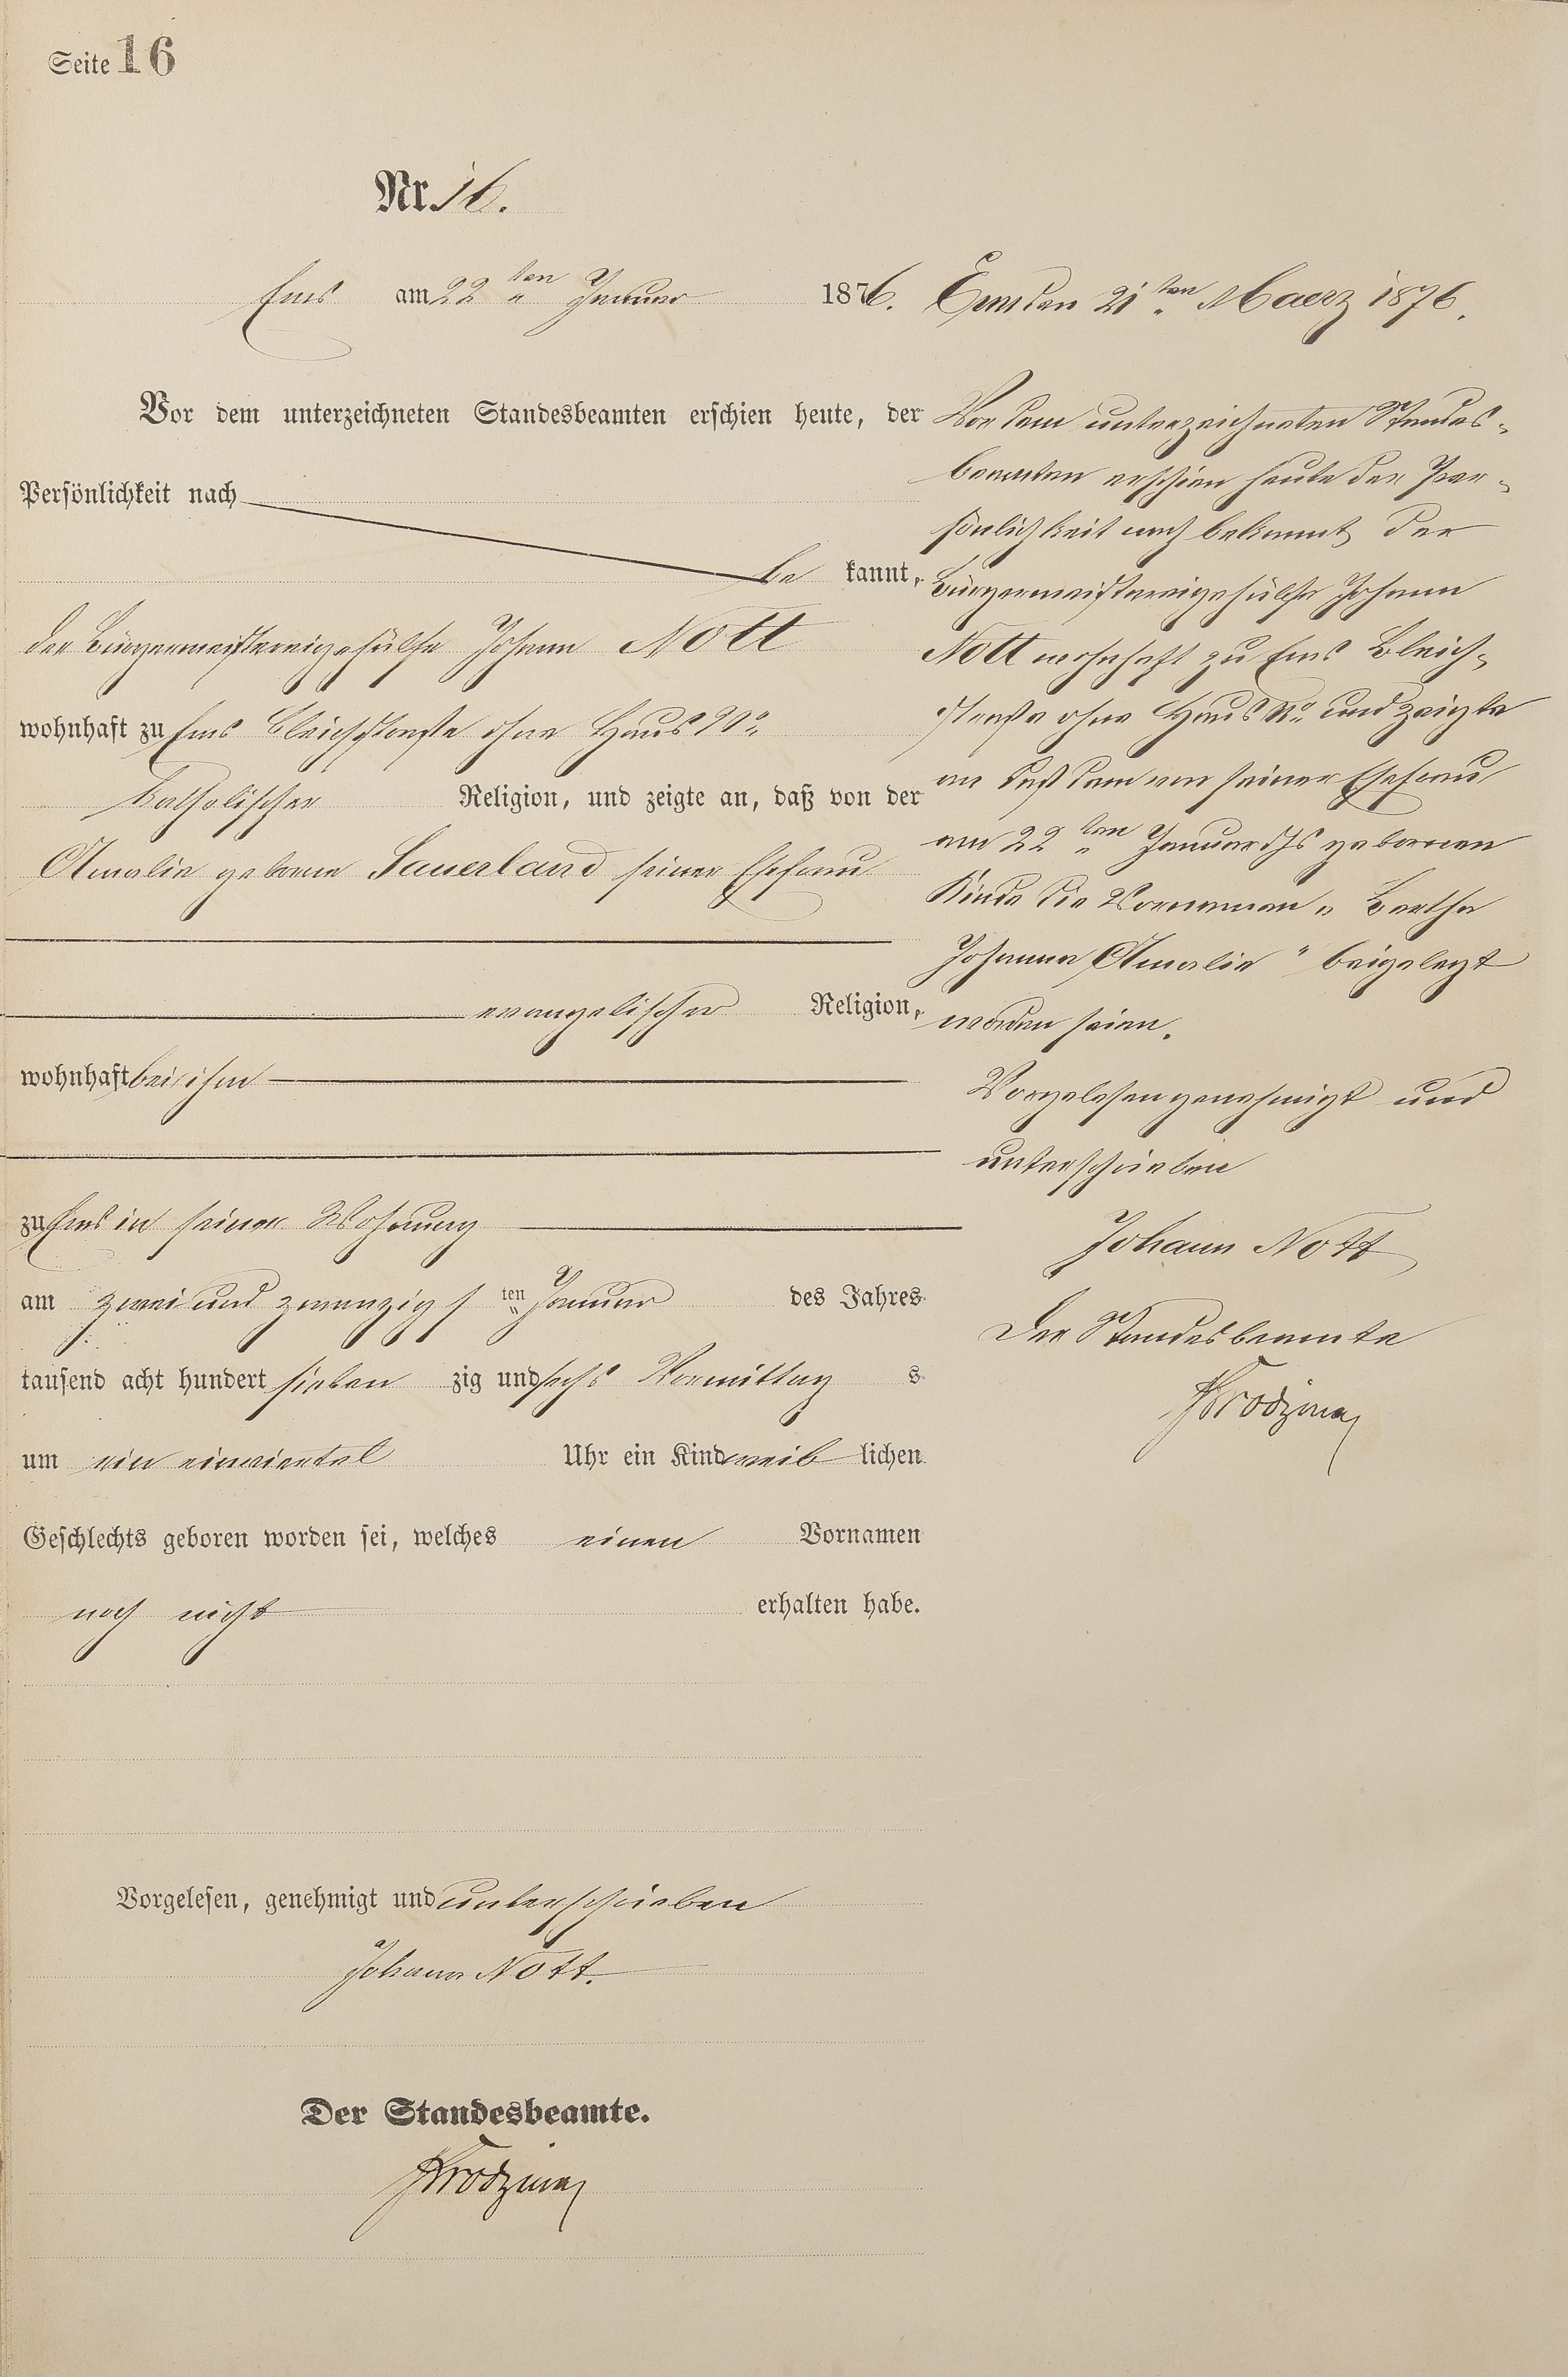 Seite 16
Nr. 16.
Ems am 22ten Januar 1876.
Vor dem unterzeichneten Standesbeamten erschien heute, der
Persönlichkeit nach
be kannt,
der Bürgermeistereigehülfe Johann Nott
wohnhaft zu Ems Bleichstraße ohne Haus No
katholischer Religion, und zeigte an, daß von der
Amalie geborene Sauerland seiner Ehefrau
evangelischer Religion,
wohnhaft bei ihm
zu Ems in seiner Wohnung
am zwei und zwanzigs ten Januar des Jahres
tausend acht hundert sieben zig und sechs Vormittag s
um ein einviertel Uhr ein Kind weib lichen
Geschlechts geboren worden sei, welches einen Vornamen
noch nicht erhalten habe.
Vorgelesen, genehmigt und unterschrieben
Johann Nott.
Der Standesbeamte.
Ems den 21ten Maerz 1876.
Vor dem unterzeichneten Standes-
beamten erschien heute der Per-
sönlichkeit nach bekannt der
Bürgermeistereigehülfe Johann
Nott wohnhaft zu Ems Bleich-
straße ohne Haus No und zeigte
an daß dem von seiner Ehefrau
am 22ten Januar ds Js gebornen
Kinde die Vornamen „Bertha
Johanna Amalie" beigelegt
worden seien.
Vorgelesen genehmigt und
unterschrieben
Johann Nott
Der Standesbeamte